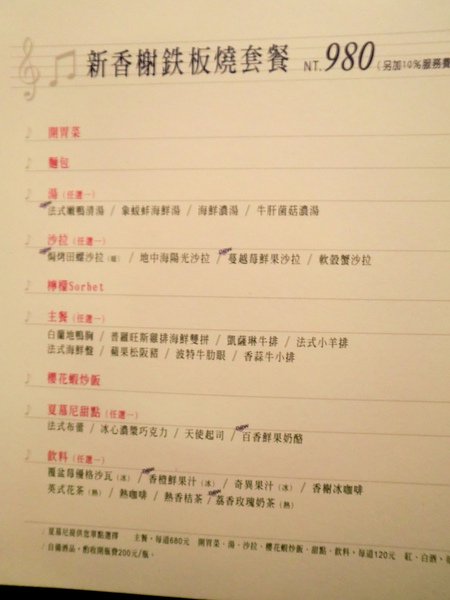 新香榭鉄板燒套餐 NT. 980 (另加10%服務費
開胃菜
麵包
湯 (任選一)
new
法式嫩鴨清湯 / 象蚬蚌海鮮湯 / 海鮮濃湯 / 牛肝菌菇濃湯
沙拉 (任選一)
new new
焗烤田螺沙拉 (暖) / 地中海陽光沙拉 / 蔓越莓鮮果沙拉 / 軟殼蟹沙拉
檸檬Sorbet
主餐 (任選一)
白蘭地鴨胸 / 普羅旺斯雞排海鮮雙拼 / 凱薩琳牛排 / 法式小羊排
法式海鮮盤 / 蘋果松阪豬 / 波特牛肋眼 / 香蒜牛小排
櫻花蝦炒飯
夏慕尼甜點 (任選一)
new
法式布蕾 / 冰心濃漿巧克力 / 天使起司 / 百香鮮果奶酪
飲料 (任選一)
new
覆盆莓優格沙瓦 (冰) / 香橙鮮果汁 (冰) / 奇異果汁 (冰) / 香榭冰咖啡
new
英式花茶 (熱) / 熱咖啡 / 熱香桔茶 / 荔香玫瑰奶茶 (熱)
/ 夏慕尼提供您單點選擇 主餐，每道680元 開胃菜、湯、沙拉、櫻花蝦炒飯、甜點、飲料，每道120元 紅、白酒、
/ 自備酒品，酌收開瓶費200元/瓶。